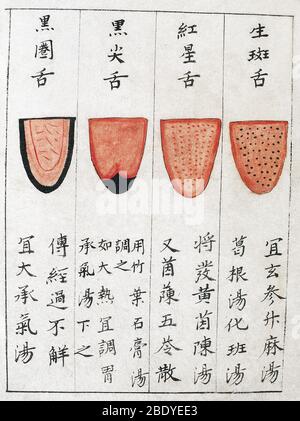 生斑舌
宜玄参升麻湯
葛根湯化班湯
紅星舌
將發黃茵陳湯
又茵蔯五苓散
黑尖舌
用竹葉石膏湯
調之
如大熱宜調胃
承氣湯下之
黑圈舌
傳經過不解
宜大承氣湯
alamy - 2BDYEE3